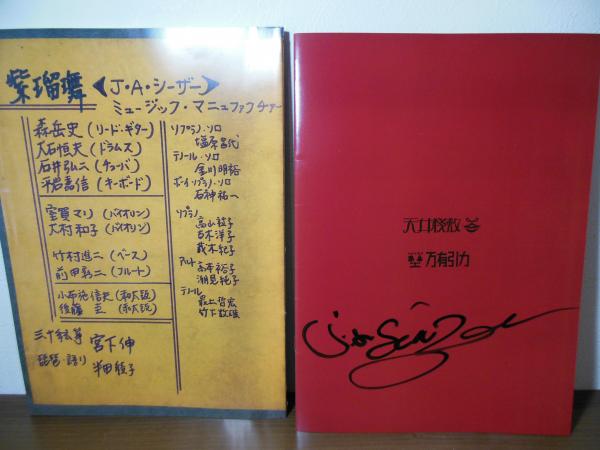 紫瑠舞
《J・A・シーザー》
ミュージック・マニュファクチャー
森岳史(リード・ギター)
大石恒夫(ドラムス)
石井弘二(チューバ)
平岩嘉信(キーボード)
室賀マリ(バイオリン)
大村和子(バイオリン)
竹村進二(ベース)
前田
(フルート)
小布施信史(和太鼓)
後藤
(和太鼓)
三十弦箏
宮下伸
琵琶・語り
半田綾子
ソプラノ・ソロ
塩原昌代
テノール・ソロ
金川明裕
ボーイ・ソプラノ・ソロ
石神祐一
ソプラノ
高山
子
吉木洋子
茂木紀子
アルト
高本裕子
潮見純子
テノール
最上哲宏
竹下
雄
天井桟敷
万有引力
J・A・Seazer